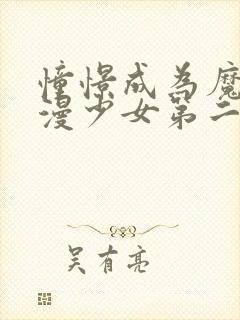 憧憬成為魔
漫少女第二
吴有亮